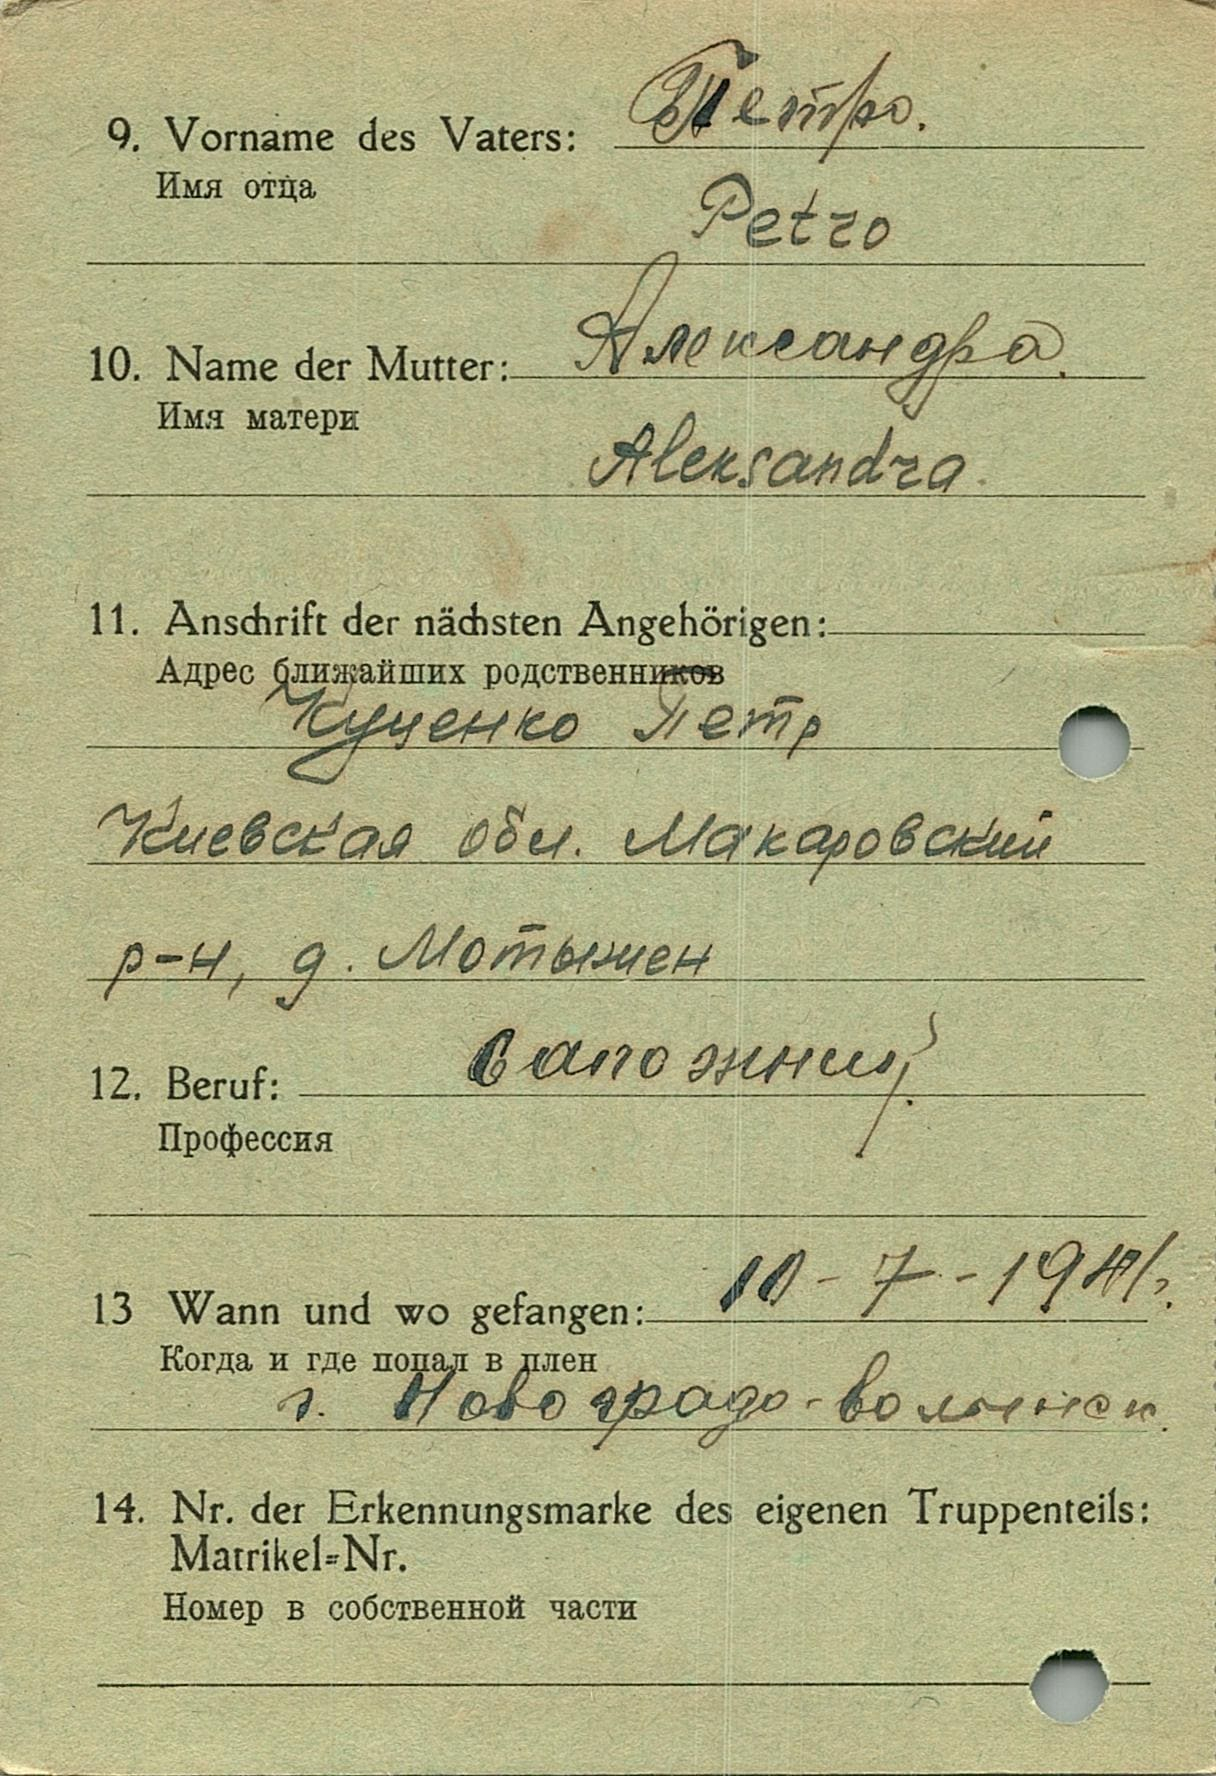 9. Vorname des Vaters: Петро.
Имя отца
Petro
10. Name der Mutter: Александра.
Имя матери
Aleksandra.
11. Anschrift der nächsten Angehörigen:
Адрес ближайших родственников
Куценко Петр
Киевская обл. Макаровский
р-н, д. Мотыжен
12. Beruf: Сапожник.
Профессия
13 Wann und wo gefangen: 10-7-1941г.
Когда и где попал в плен
г. Новоградо-волынск.
14. Nr. der Erkennungsmarke des eigenen Truppenteils:
Matrikel=Nr.
Номер в собственной части